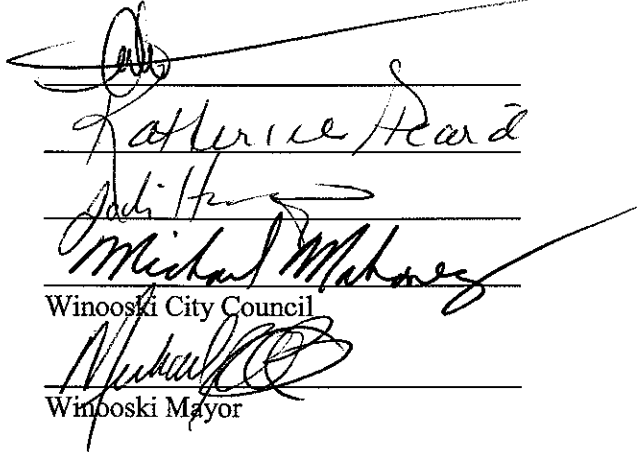 Katherine Heard
Jodi
Michael Mahoney
Winooski City Council
Michael
Winooski Mayor